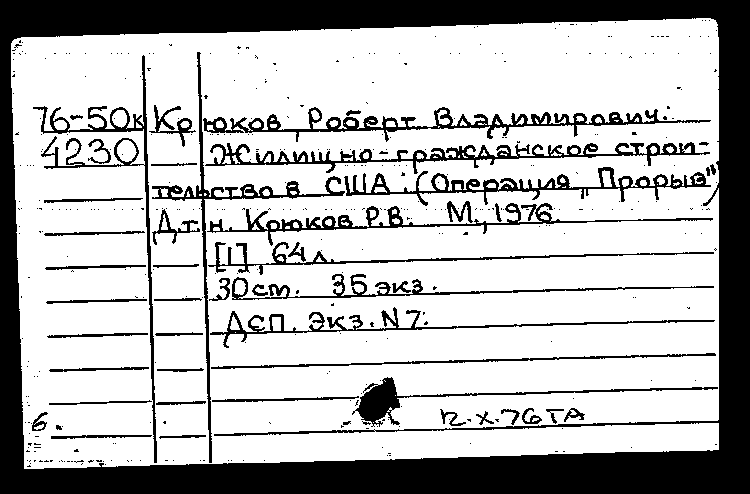 76-50к Крюков, Роберт Владимирович.
4230 Жилищно-гражданское строи-
тельство в США. (Операция „Прорыв")
Д.т.н. Крюков Р.В. М., 1976.
[1], 64 л.
30 см. 35 экз.
ДСП. Экз. N 7.
6. 12.X.76 ТА